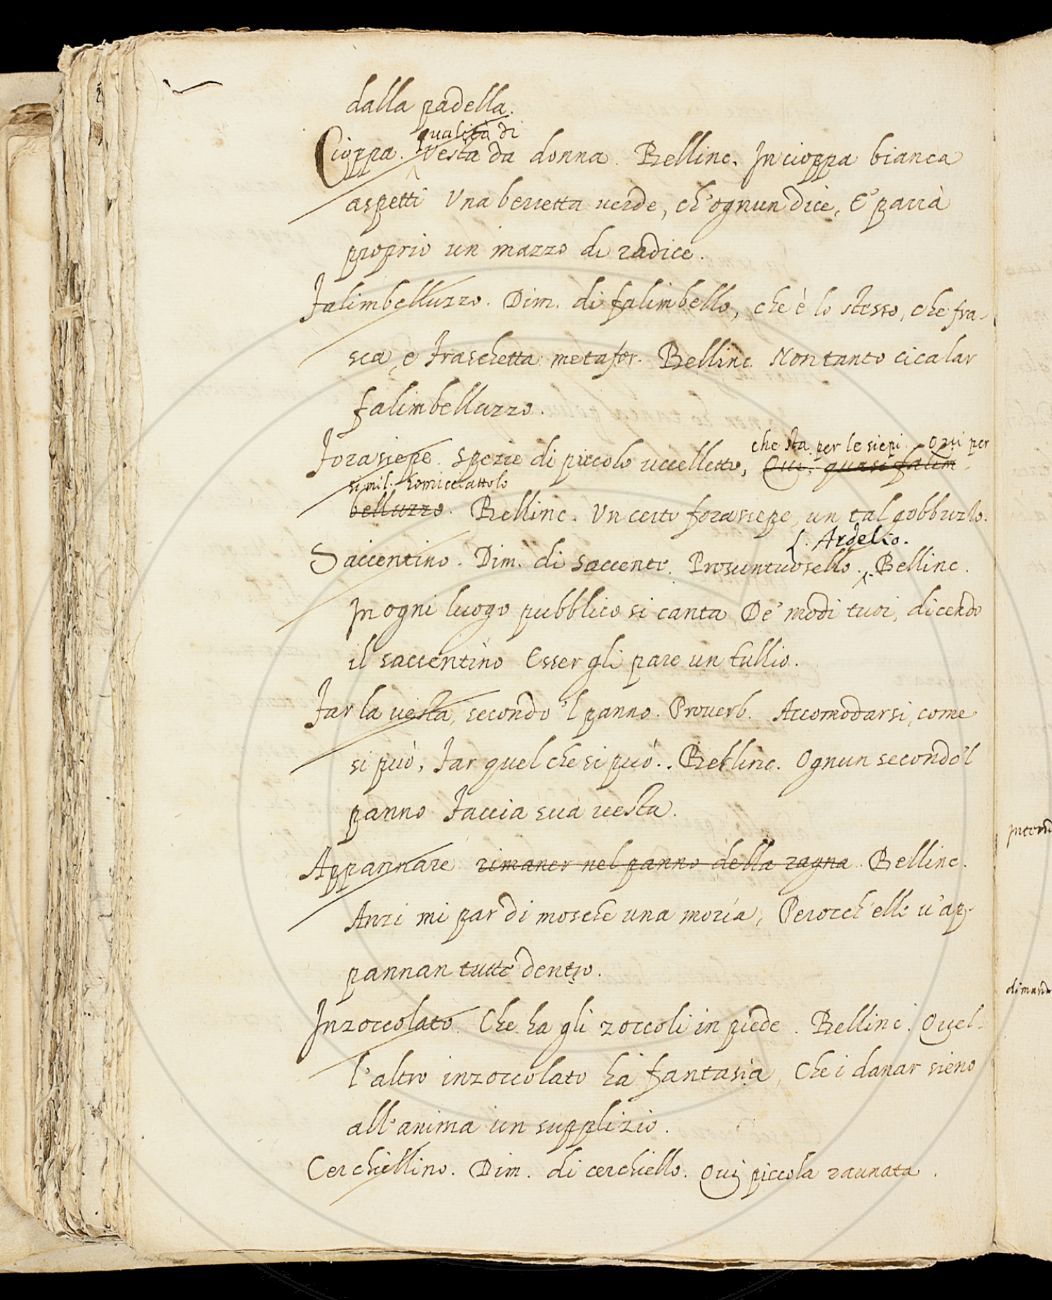 dalla padella.
qualità di
Cioppa. Vesta da donna. Bellinc. In cioppa bianca
aspetti Una berretta verde, ch'ognun dice, E' parrà
proprio un mazzo di radice.
Falimbelluzzo. Dim. di falimbello, che è lo stesso, che fra-
sca, e fraschetta metafor. Bellinc. Non tanto cicalar
falimbelluzzo.
che sta per le siepi. Qui per
Forasiepe. Spezie di piccolo uccelletto, Qui. quasi falim
simil. homicciattolo
belluzzo. Bellinc. Un certo forasiepe, un tal gobbuzzo.
L. Ardelio.
Saccentino. Dim. di Saccente. Prosuntuosello. Bellinc.
In ogni luogo pubblico si canta De' modi tuoi, dicendo
il saccentino Esser gli pare un Tullio.
Far la vesta, secondo 'l panno. Proverb. Accomodarsi, come
si può, Far quel che si può.. Bellinc. Ognun secondo 'l
panno Faccia sua vesta.
Appannare rimaner nel panno della ragna Bellinc.
Anzi mi par di mosche una moria, Perocch'elle v'ap-
pannan tutte dentro.
Inzoccolato. Che ha gli zoccoli in piede. Bellinc. Quel-
l'altro inzoccolato ha fantasia, Che i danar sieno
all'anima un supplizio.
Cerchiellino. Dim. di cerchiello. Qui piccola raunata.